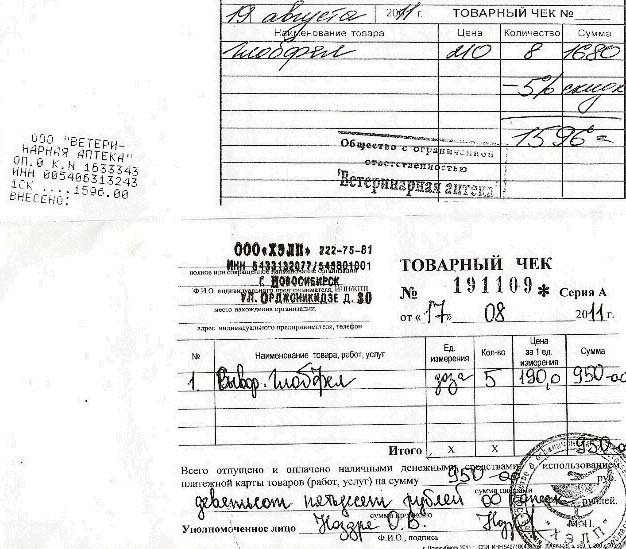 19 августа 2011 г. ТОВАРНЫЙ ЧЕК №
Наименование товара Цена Количество Сумма
Глобфел 210 8 1680
-5% скидк
1596=
Общество с ограниченной
ответственностью
"Ветеринарная аптека"
ООО "ВЕТЕРИ-
НАРНАЯ АПТЕКА"
ОП.0 К.Н 1633343
ИНН 005406313243
1СК ....1596.00
ВНЕСЕНО:
ООО «ХЭЛП» 222-75-81
ИНН 5433132077/543801001
г. НОВОСИБИРСК
УЛ. ОРДЖОНИКИДЗЕ Д. 30
Ф.И.О. индивидуального предпринимателя, ИНН/КПП
место нахождения организации,
адрес индивидуального предпринимателя, телефон
ТОВАРНЫЙ ЧЕК
№ 191109* Серия А
от «17» 08 2011 г.
№ Наименование товара, работ, услуг Ед. измерения Кол-во Цена за 1 ед. измерения Сумма
1. Глобфел доза 5 190,0 950-00
Итого X X 950-00
Всего отпущено и оплачено наличными денежными средствами с использованием
платежной карты товаров (работ, услуг) на сумму 950-00 руб.
сумма цифрами
девятьсот пятьдесят рублей 00 копеек рублей.
сумма прописью
Уполномоченное лицо Ноздре О.В. М.П.
Ф.И.О., подпись
"ХЭЛП"